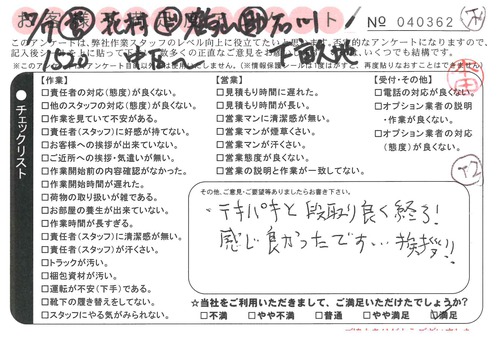 № 040362
このアンケートは、弊社作業スタッフのレベル向上に役立てたい
チェックリスト
【作業】
□責任者の対応(態度)が良くない。
□他のスタッフの対応(態度)が良くない。
□作業を見ていて不安がある。
□責任者(スタッフ)に好感が持てない。
□お客様への挨拶が出来ていない。
□ご近所への挨拶・気遣いが無い。
□作業開始前の内容確認がなかった。
□作業開始時間が遅れた。
□荷物の取り扱いが雑である。
□お部屋の養生が出来ていない。
□作業時間が長すぎる。
□責任者(スタッフ)に清潔感が無い。
□責任者(スタッフ)が汗くさい。
□トラックが汚い。
□梱包資材が汚い。
□運転が不安(下手)である。
□靴下の履き替えをしてない。
□スタッフにやる気がみられない。
【営業】
□見積もり時間に遅れた。
□見積もり時間が長い。
□営業マンに清潔感が無い。
□営業マンが煙草くさい。
□営業マンが汗くさい。
□営業態度が良くない。
□営業の説明と作業が一致してない。
【受付・その他】
□電話の対応が良くない。
□オプション業者の説明
・作業が良くない。
□オプション業者の対応
(態度)が良くない。
その他、ご意見・ご要望等ありましたらお書き下さい。
テキパキと段取り良く終る!
感じ良かったです…挨拶!!
☆当社をご利用いただきまして、ご満足いただけたでしょうか?
□不満 □やや不満 □普通 □やや満足 □満足